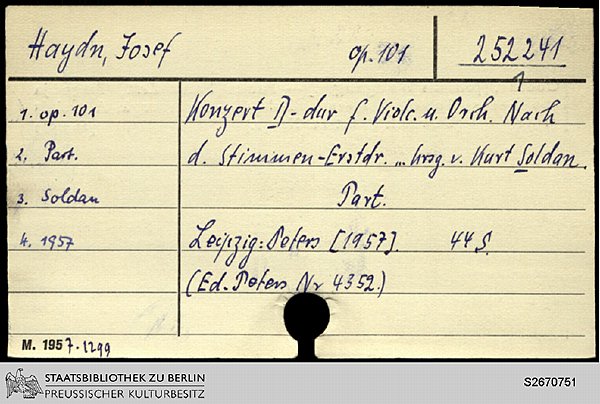 Haydn, Josef op. 101 252241
1. op. 101
Konzert D-dur f. Violc. u. Orch. Nach
2. Part.
d. Stimmen-Erstdr. ... hrsg. v. Kurt Soldan.
3. Soldan
Part.
4. 1957
Leipzig: Peters [1957]. 44 S.
(Ed. Peters Nr 4352.)
M. 1957.1299
STAATSBIBLIOTHEK ZU BERLIN
PREUSSISCHER KULTURBESITZ
S2670751